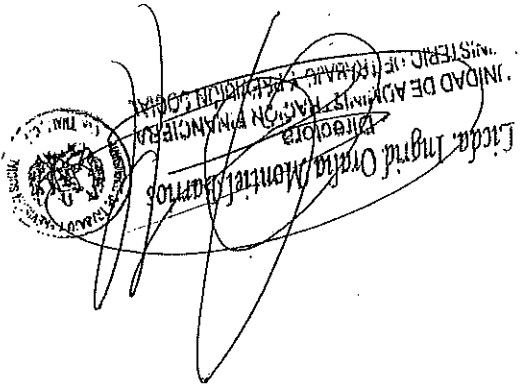 Licda. Ingrid Oralia Montiel Barrios
Directora
UNIDAD DE ADMINISTRACIÓN FINANCIERA
MINISTERIO DE TRABAJO Y PREVISIÓN SOCIAL